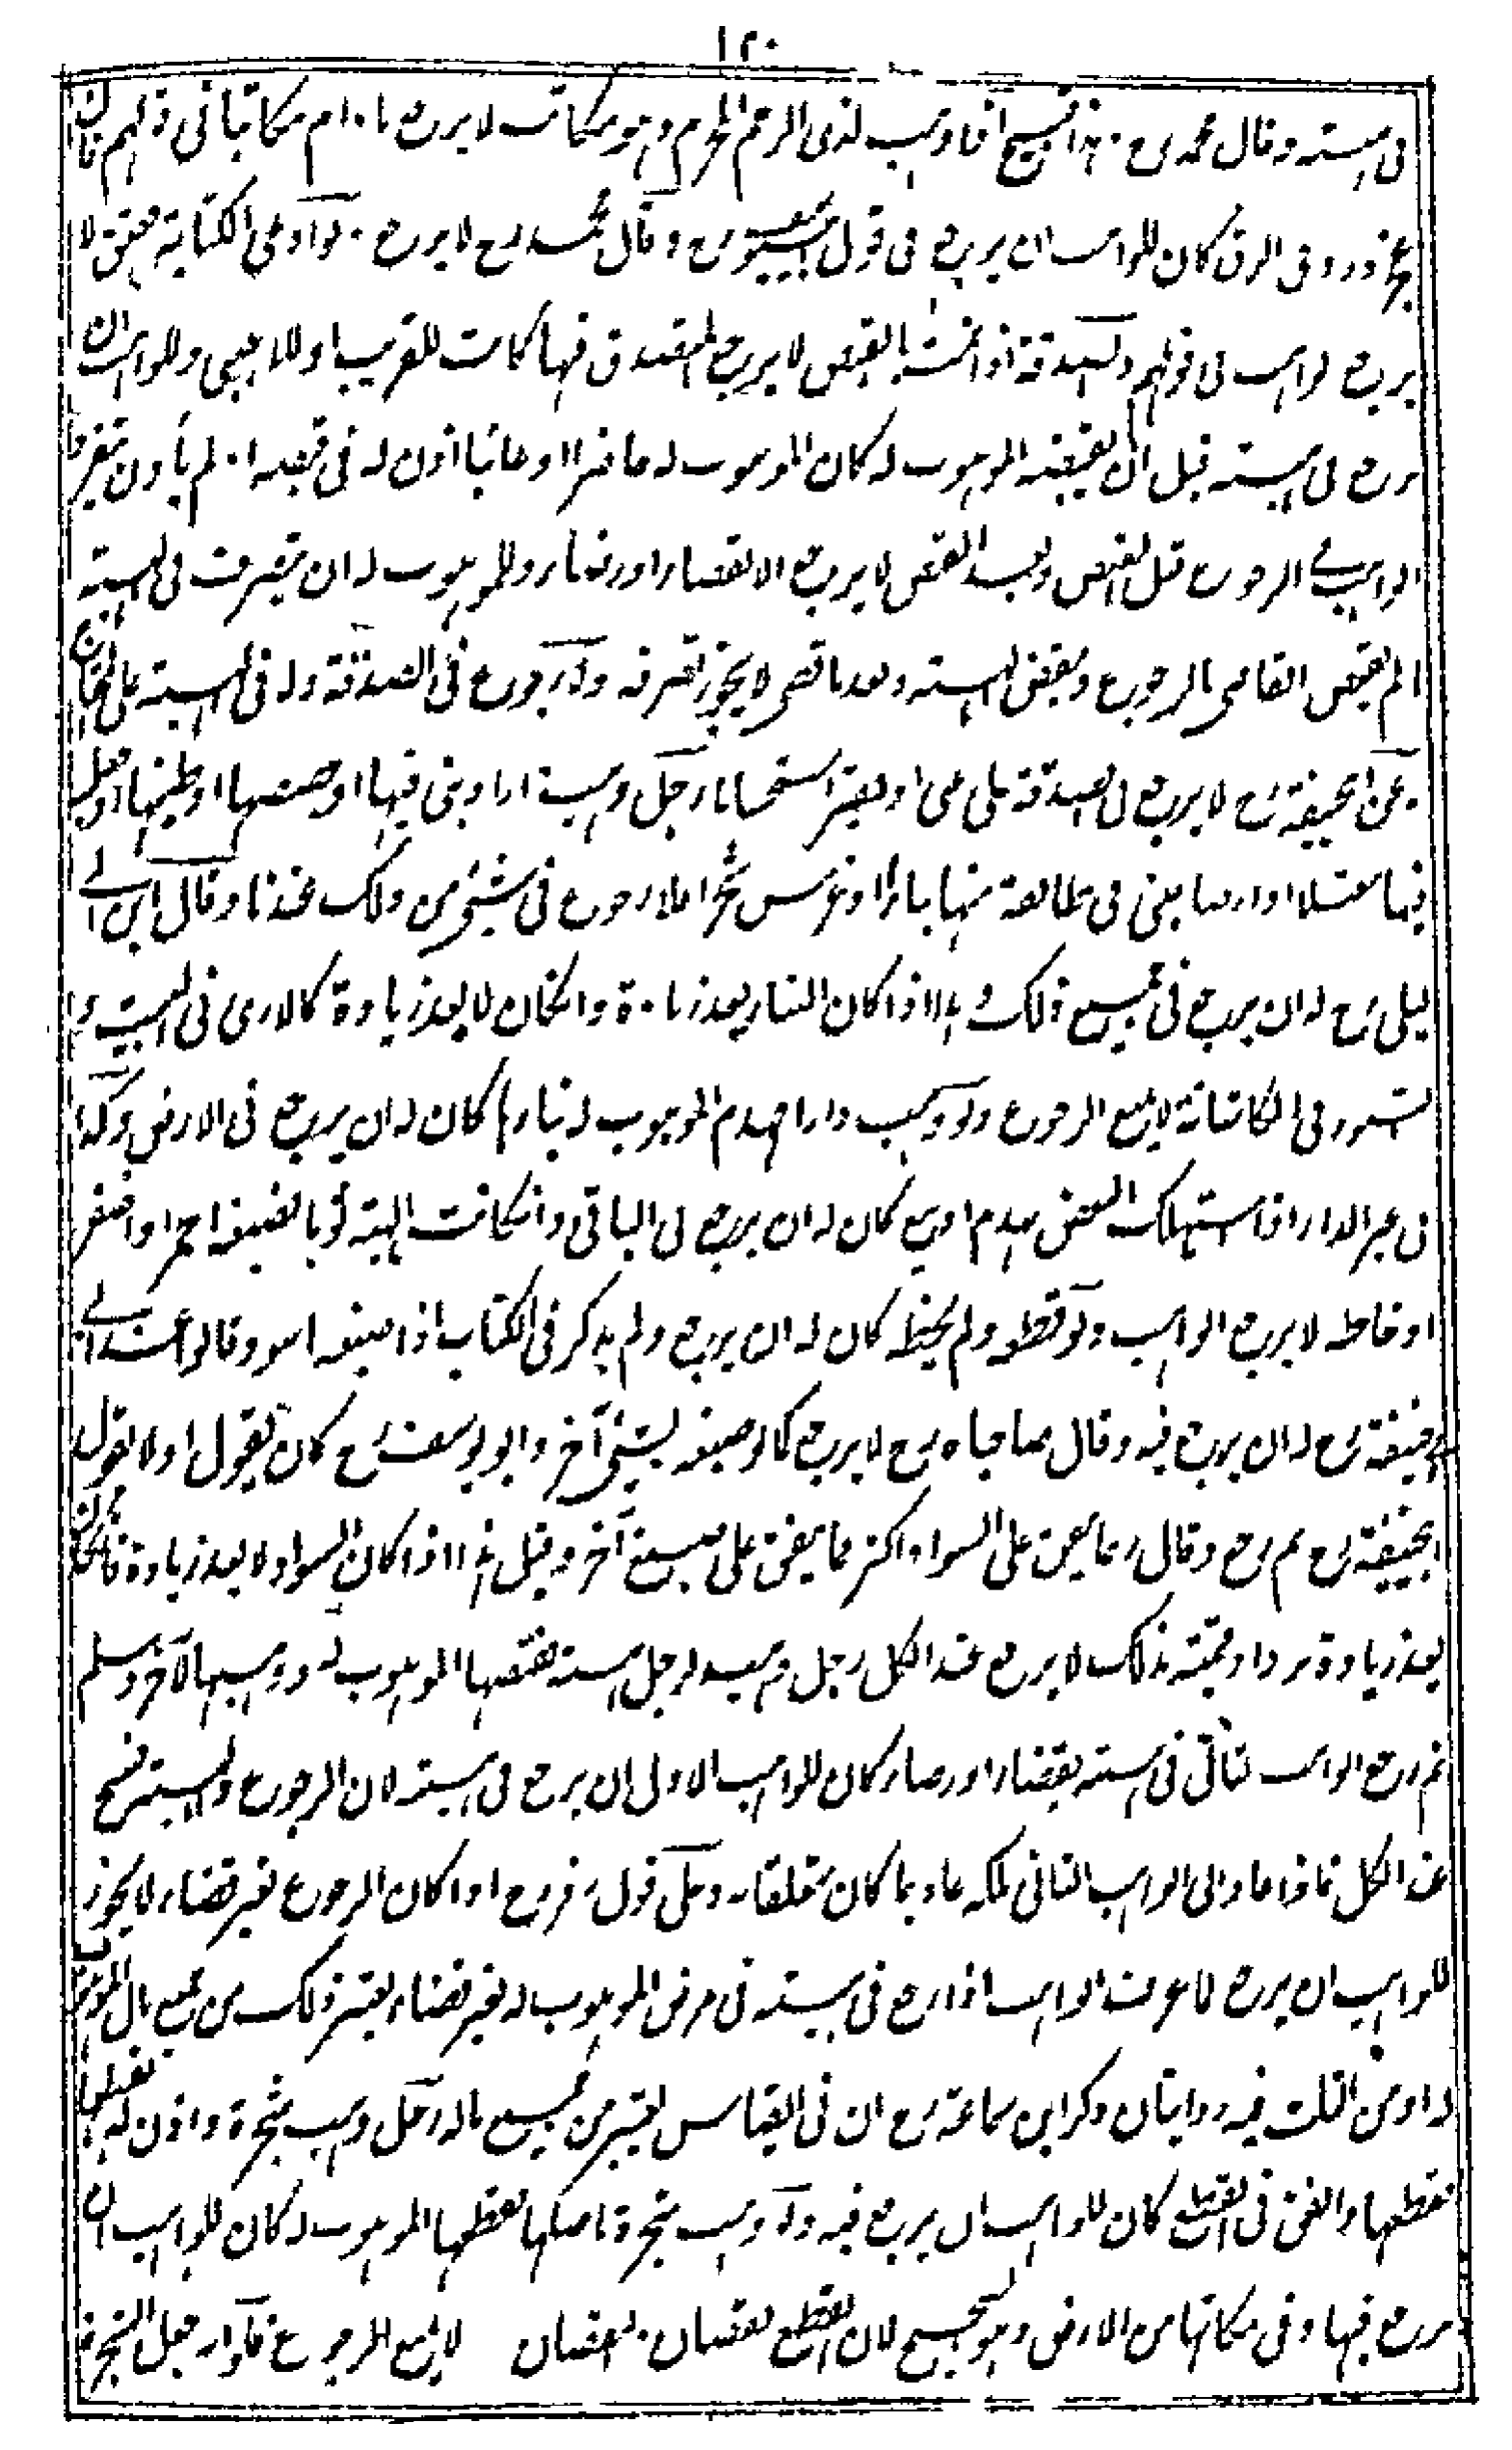 ١٢٠
فى هبته وقال محمد رح هذا اذا وهب لذى الرحم المحرم وهو مكاتب لا يرجع ما دام مكاتبا فى قولهم فان
عجز ورد فى الرق كان للواهب ان يرجع فى قول ابى يوسف رح وقال محمد رح لا يرجع ولو ادى الكتابة فعتق لا
يرجع الواهب فى قولهم والصدقة اذا تمت بالقبض لا يرجع المتصدق فيها كانت للقريب او للاجنبى وللواهب ان
يرجع فى هبته قبل ان يقبضه الموهوب له كان الموهوب له حاضرا او غائبا اذن له فى قبضه او لم يأذن وينفرد
الواهب فى الرجوع قبل القبض وبعد القبض لا يرجع الا بقضاء او رضاء وللموهوب له ان يتصرف فى الهبة
ما لم يقض القاضى بالرجوع وينقض الهبة وبعد ما قضى لا يجوز تصرفه ولا رجوع فى الصدقة ولا فى الهبة على المحتاج
وعن ابى حنيفة رح لا يرجع فى الصدقة على غنى او فقير استحسانا رجل وهب دارا وبنى فيها او جصصها او طينها او جعل
فيها مغتسلا او ارضا فبنى فى طائفة منها بناء او غرس شجرا فلا رجوع فى شيئ من ذلك عندنا وقال ابن ابى
ليلى رح له ان يرجع فى جميع ذلك وهذا اذا كان البناء يعد زيادة وان كان لا يعد زيادة كالارى فى البيت و
التنور فى الكاشانة لا يمنع الرجوع ولو وهب دارا فهدم الموهوب له بناءها كان له ان يرجع فى الارض وكذا
فى غير الدار اذا استهلك البعض بهدم او بيع كان له ان يرجع فى الباقى وان كانت الهبة ثوبا فصبغه احمر او اصفر
او خاطه لا يرجع الواهب ولو قطعه ولم يخطه كان له ان يرجع ولم يذكر فى الكتاب اذا صبغه اسود وقالوا عند ابى
حنيفة رح له ان يرجع فيه وقال صاحباه رح لا يرجع كما لو صبغه بشيئ آخر وابو يوسف رح كان يقول اولا بقول
ابى حنيفة رح ثم رجع وقال ربما ينفق على السواد اكثر مما ينفق على صبغ آخر وقيل هذا اذا كان السواد لا يعد زيادة فان كان
يعد زيادة يزداد قيمته بذلك لا يرجع عند الكل رجل وهب لرجل هبة فقبضها الموهوب له ووهبها لآخر وسلم
ثم رجع الواهب الثانى فى الهبة بقضاء او رضاء كان للواهب الاول ان يرجع فى هبته لان الرجوع فى الهبة فسخ
عند الكل فاذا عاد الى الواهب الثانى ملكه عاد بما كان متعلقا به وعلى قول زفر رح اذا كان الرجوع بغير قضاء لا يجوز
للواهب ان يرجع لما عرف الواهب اذا رجع فى هبته فى مرض الموهوب له بغير قضاء يعتبر ذلك من جميع مال الموهوب
له او من الثلث فيه روايتان وذكر ابن سماعة رح ان فى القياس يعتبر من جميع ماله رجل وهب شجرة واذن له بقطعها
فقطعها وانفق فى القطع كان للواهب ان يرجع فيه ولو وهب شجرة باصلها فقطعها الموهوب له كان للواهب ان
يرجع فيها وفى مكانها من الارض وهو الصحيح لان القطع نقصان والنقصان لا يمنع الرجوع فلو انه جعل الشجرة